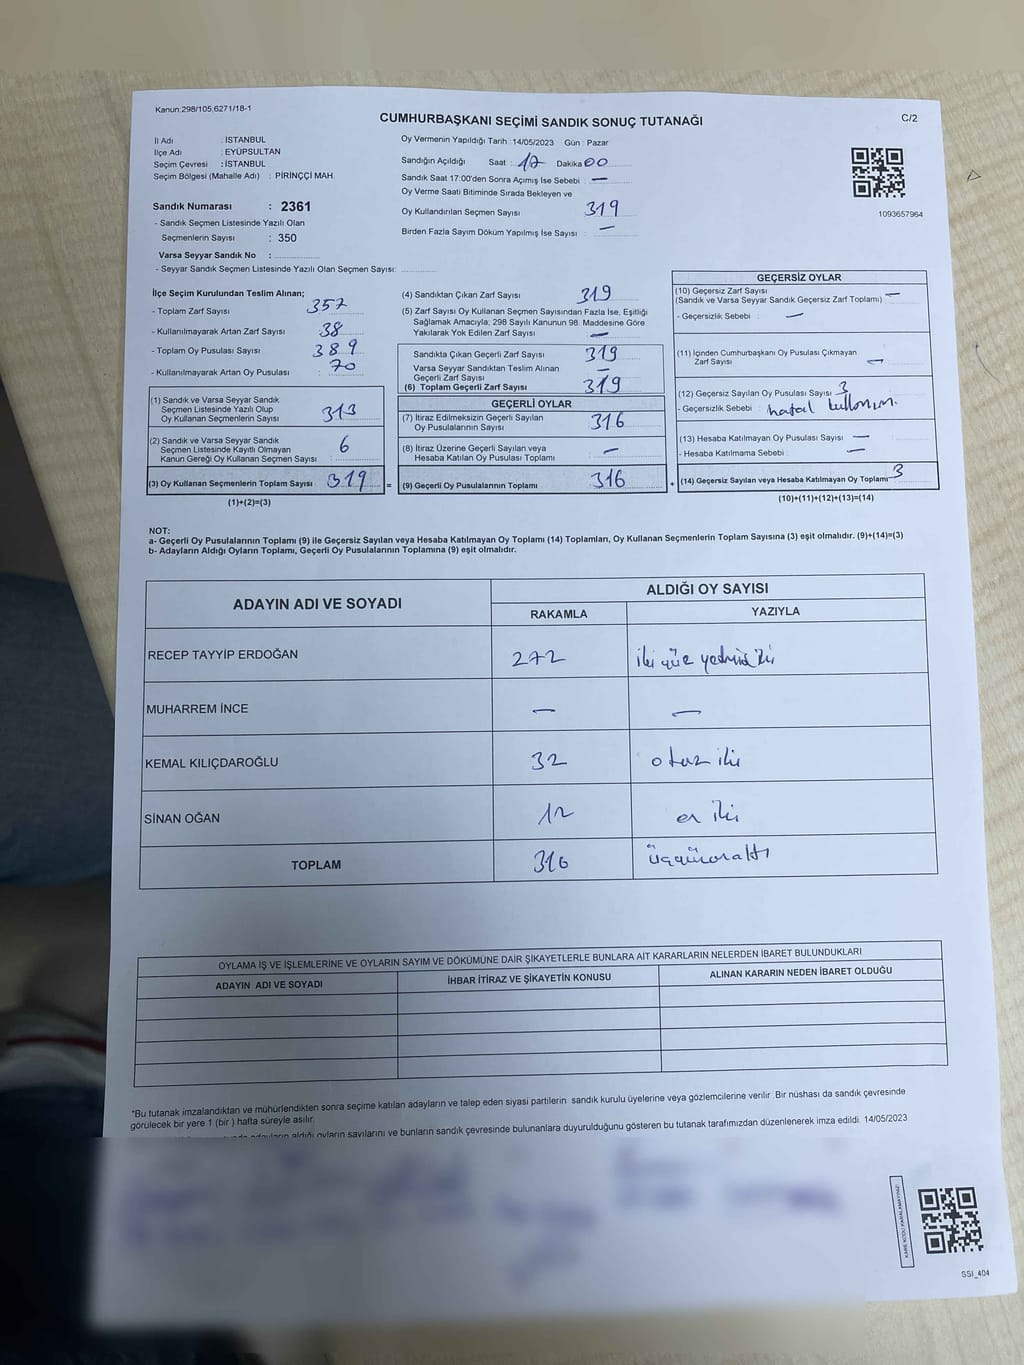 Kanun:298/105;6271/18-1
CUMHURBAŞKANI SEÇİMİ SANDIK SONUÇ TUTANAĞI
C/2
İl Adı : İSTANBUL
İlçe Adı : EYÜPSULTAN
Seçim Çevresi : İSTANBUL
Seçim Bölgesi (Mahalle Adı) : PİRİNÇÇİ MAH.
Sandık Numarası : 2361
- Sandık Seçmen Listesinde Yazılı Olan
Seçmenlerin Sayısı : 350
Varsa Seyyar Sandık No :
- Seyyar Sandık Seçmen Listesinde Yazılı Olan Seçmen Sayısı:
Oy Vermenin Yapıldığı Tarih :14/05/2023 Gün : Pazar
Sandığın Açıldığı Saat : 17 Dakika 00
Sandık Saat 17:00'den Sonra Açımış İse Sebebi : —
Oy Verme Saati Bitiminde Sırada Bekleyen ve
Oy Kullandırılan Seçmen Sayısı 319
Birden Fazla Sayım Döküm Yapılmış İse Sayısı : —
1093657964
İlçe Seçim Kurulundan Teslim Alınan;
- Toplam Zarf Sayısı : 357
- Kullanılmayarak Artan Zarf Sayısı : 38
- Toplam Oy Pusulası Sayısı : 389
- Kullanılmayarak Artan Oy Pusulası : 70
(1) Sandık ve Varsa Seyyar Sandık
Seçmen Listesinde Yazılı Olup
Oy Kullanan Seçmenlerin Sayısı 313
(2) Sandık ve Varsa Seyyar Sandık
Seçmen Listesinde Kayıtlı Olmayan
Kanun Gereği Oy Kullanan Seçmen Sayısı 6
(3) Oy Kullanan Seçmenlerin Toplam Sayısı 319 =
(1)+(2)=(3)
(4) Sandıktan Çıkan Zarf Sayısı 319
(5) Zarf Sayısı Oy Kullanan Seçmen Sayısından Fazla İse, Eşitliği
Sağlamak Amacıyla; 298 Sayılı Kanunun 98. Maddesine Göre
Yakılarak Yok Edilen Zarf Sayısı : —
Sandıkta Çıkan Geçerli Zarf Sayısı 319
Varsa Seyyar Sandıktan Teslim Alınan
Geçerli Zarf Sayısı —
(6) Toplam Geçerli Zarf Sayısı 319
GEÇERLİ OYLAR
(7) İtiraz Edilmeksizin Geçerli Sayılan
Oy Pusulalarının Sayısı 316
(8) İtiraz Üzerine Geçerli Sayılan veya
Hesaba Katılan Oy Pusulası Toplamı —
(9) Geçerli Oy Pusulalarının Toplamı 316 +
GEÇERSİZ OYLAR
(10) Geçersiz Zarf Sayısı —
(Sandık ve Varsa Seyyar Sandık Geçersiz Zarf Toplamı)
- Geçersizlik Sebebi : —
(11) İçinden Cumhurbaşkanı Oy Pusulası Çıkmayan
Zarf Sayısı —
(12) Geçersiz Sayılan Oy Pusulası Sayısı 3
- Geçersizlik Sebebi : hatalı kullanım.
(13) Hesaba Katılmayan Oy Pusulası Sayısı —
- Hesaba Katılmama Sebebi : —
(14) Geçersiz Sayılan veya Hesaba Katılmayan Oy Toplamı 3
(10)+(11)+(12)+(13)=(14)
NOT:
a- Geçerli Oy Pusulalarının Toplamı (9) ile Geçersiz Sayılan veya Hesaba Katılmayan Oy Toplamı (14) Toplamları, Oy Kullanan Seçmenlerin Toplam Sayısına (3) eşit olmalıdır. (9)+(14)=(3)
b- Adayların Aldığı Oyların Toplamı, Geçerli Oy Pusulalarının Toplamına (9) eşit olmalıdır.
ADAYIN ADI VE SOYADI
ALDIĞI OY SAYISI
RAKAMLA YAZIYLA
RECEP TAYYİP ERDOĞAN 272 iki yüz yetmiş iki
MUHARREM İNCE — —
KEMAL KILIÇDAROĞLU 32 otuz iki
SİNAN OĞAN 12 on iki
TOPLAM 316 üçyüzonaltı
OYLAMA İŞ VE İŞLEMLERİNE VE OYLARIN SAYIM VE DÖKÜMÜNE DAİR ŞİKAYETLERLE BUNLARA AİT KARARLARIN NELERDEN İBARET BULUNDUKLARI
ADAYIN ADI VE SOYADI İHBAR İTİRAZ VE ŞİKAYETİN KONUSU ALINAN KARARIN NEDEN İBARET OLDUĞU
*Bu tutanak imzalandıktan ve mühürlendikten sonra seçime katılan adayların ve talep eden siyasi partilerin sandık kurulu üyelerine veya gözlemcilerine verilir. Bir nüshası da sandık çevresinde
görülecek bir yere 1 (bir ) hafta süreyle asılır.
adayların aldığı oyların sayılarını ve bunların sandık çevresinde bulunanlara duyurulduğunu gösteren bu tutanak tarafımızdan düzenlenerek imza edildi. 14/05/2023
KARE KODU KARALAMAYINIZ!
SSI_404